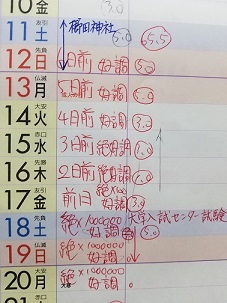 10 金 3.0
11 土 友引 稲田神社 5.0 65.5
12 日 先負 6日前 好調 5.0
13 月 仏滅 5日前 好調
14 火 大安 4日前 好調 3.0
15 水 赤口 3日前 絶好調
16 木 先勝 2日前 絶好調
17 金 友引 前日 絶×100 好調 3.0
18 土 先負 絶×1000000 好調 大学入試センター試験 5.0
19 日 仏滅 絶×1000000 好調
20 月 大安 絶×1000000 好調
大寒